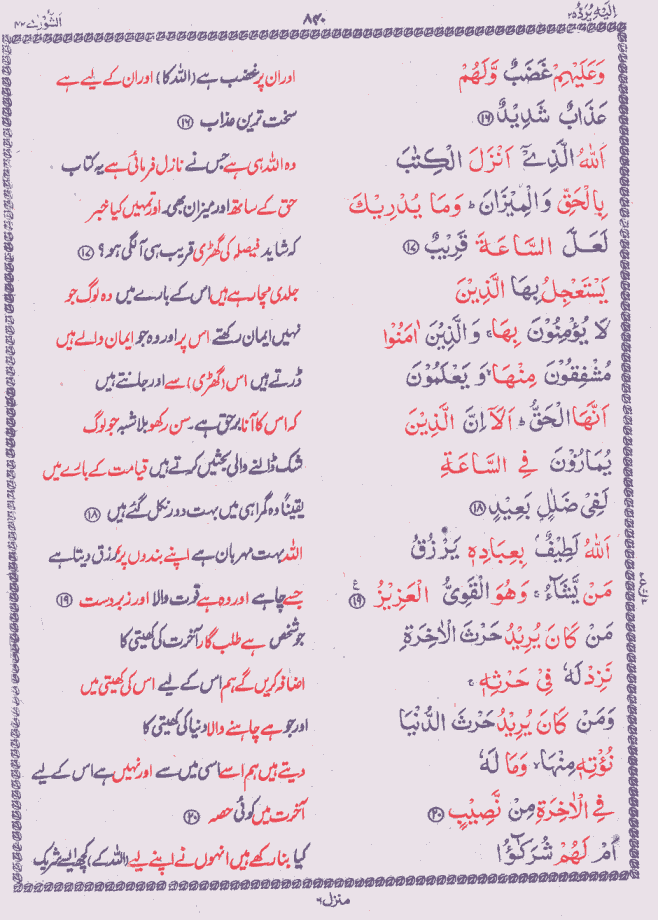 اِلَیْهِ یُرَدُّ ۲۵
۸۴۰
اَلشُّوْرٰی ۴۲
وَعَلَیْهِمْ غَضَبٌ وَّلَهُمْ
اور ان پر غضب ہے (اللہ کا) اور ان کے لیے ہے
عَذَابٌ شَدِیْدٌ ۝۱۶
سخت ترین عذاب ۝۱۶
اَللّٰهُ الَّذِیْۤ اَنْزَلَ الْكِتٰبَ
وہ اللہ ہی ہے جس نے نازل فرمائی ہے یہ کتاب
بِالْحَقِّ وَالْمِیْزَانَ ؕ وَمَا یُدْرِیْكَ
حق کے ساتھ اور میزان بھی۔ اور تمہیں کیا خبر
لَعَلَّ السَّاعَةَ قَرِیْبٌ ۝۱۷
کہ شاید فیصلہ کی گھڑی قریب ہی آ لگی ہو؟ ۝۱۷
یَسْتَعْجِلُ بِهَا الَّذِیْنَ
جلدی مچا رہے ہیں اس کے بارے میں وہ لوگ جو
لَا یُؤْمِنُوْنَ بِهَا ۚ وَالَّذِیْنَ اٰمَنُوْا
نہیں ایمان رکھتے اس پر اور وہ جو ایمان والے ہیں
مُشْفِقُوْنَ مِنْهَا ۙ وَ یَعْلَمُوْنَ
ڈرتے ہیں اس (گھڑی) سے اور جانتے ہیں
اَنَّهَا الْحَقُّ ؕ اَلَاۤ اِنَّ الَّذِیْنَ
کہ اس کا آنا برحق ہے۔ سن رکھو بلاشبہ جو لوگ
یُمَارُوْنَ فِی السَّاعَةِ
شک ڈالنے والی بحثیں کرتے ہیں قیامت کے بارے میں
لَفِیْ ضَلٰلٍۭ بَعِیْدٍ ۝۱۸
یقیناً وہ گمراہی میں بہت دور نکل گئے ہیں ۝۱۸
اَللّٰهُ لَطِیْفٌۢ بِعِبَادِهٖ یَرْزُقُ
اللہ بہت مہربان ہے اپنے بندوں پر رزق دیتا ہے
مَنْ یَّشَآءُ ۚ وَهُوَ الْقَوِیُّ الْعَزِیْزُ ۝۱۹ ع
جسے چاہے اور وہ ہے قوت والا اور زبردست ۝۱۹
مَنْ كَانَ یُرِیْدُ حَرْثَ الْاٰخِرَةِ
جو شخص ہے طلب گار آخرت کی کھیتی کا
نَزِدْ لَهٗ فِیْ حَرْثِهٖ ۚ
اضافہ کریں گے ہم اس کے لیے اس کی کھیتی میں
وَمَنْ كَانَ یُرِیْدُ حَرْثَ الدُّنْیَا
اور جو ہے چاہنے والا دنیا کی کھیتی کا
نُؤْتِهٖ مِنْهَا ۙ وَمَا لَهٗ
دیتے ہیں ہم اسے اسی میں سے اور نہیں ہے اس کے لیے
فِی الْاٰخِرَةِ مِنْ نَّصِیْبٍ ۝۲۰
آخرت میں کوئی حصہ ۝۲۰
اَمْ لَهُمْ شُرَكٰٓؤُا
کیا بنا رکھے ہیں انہوں نے اپنے لیے (اللہ کے) کچھ ایسے شریک
منزل ۶